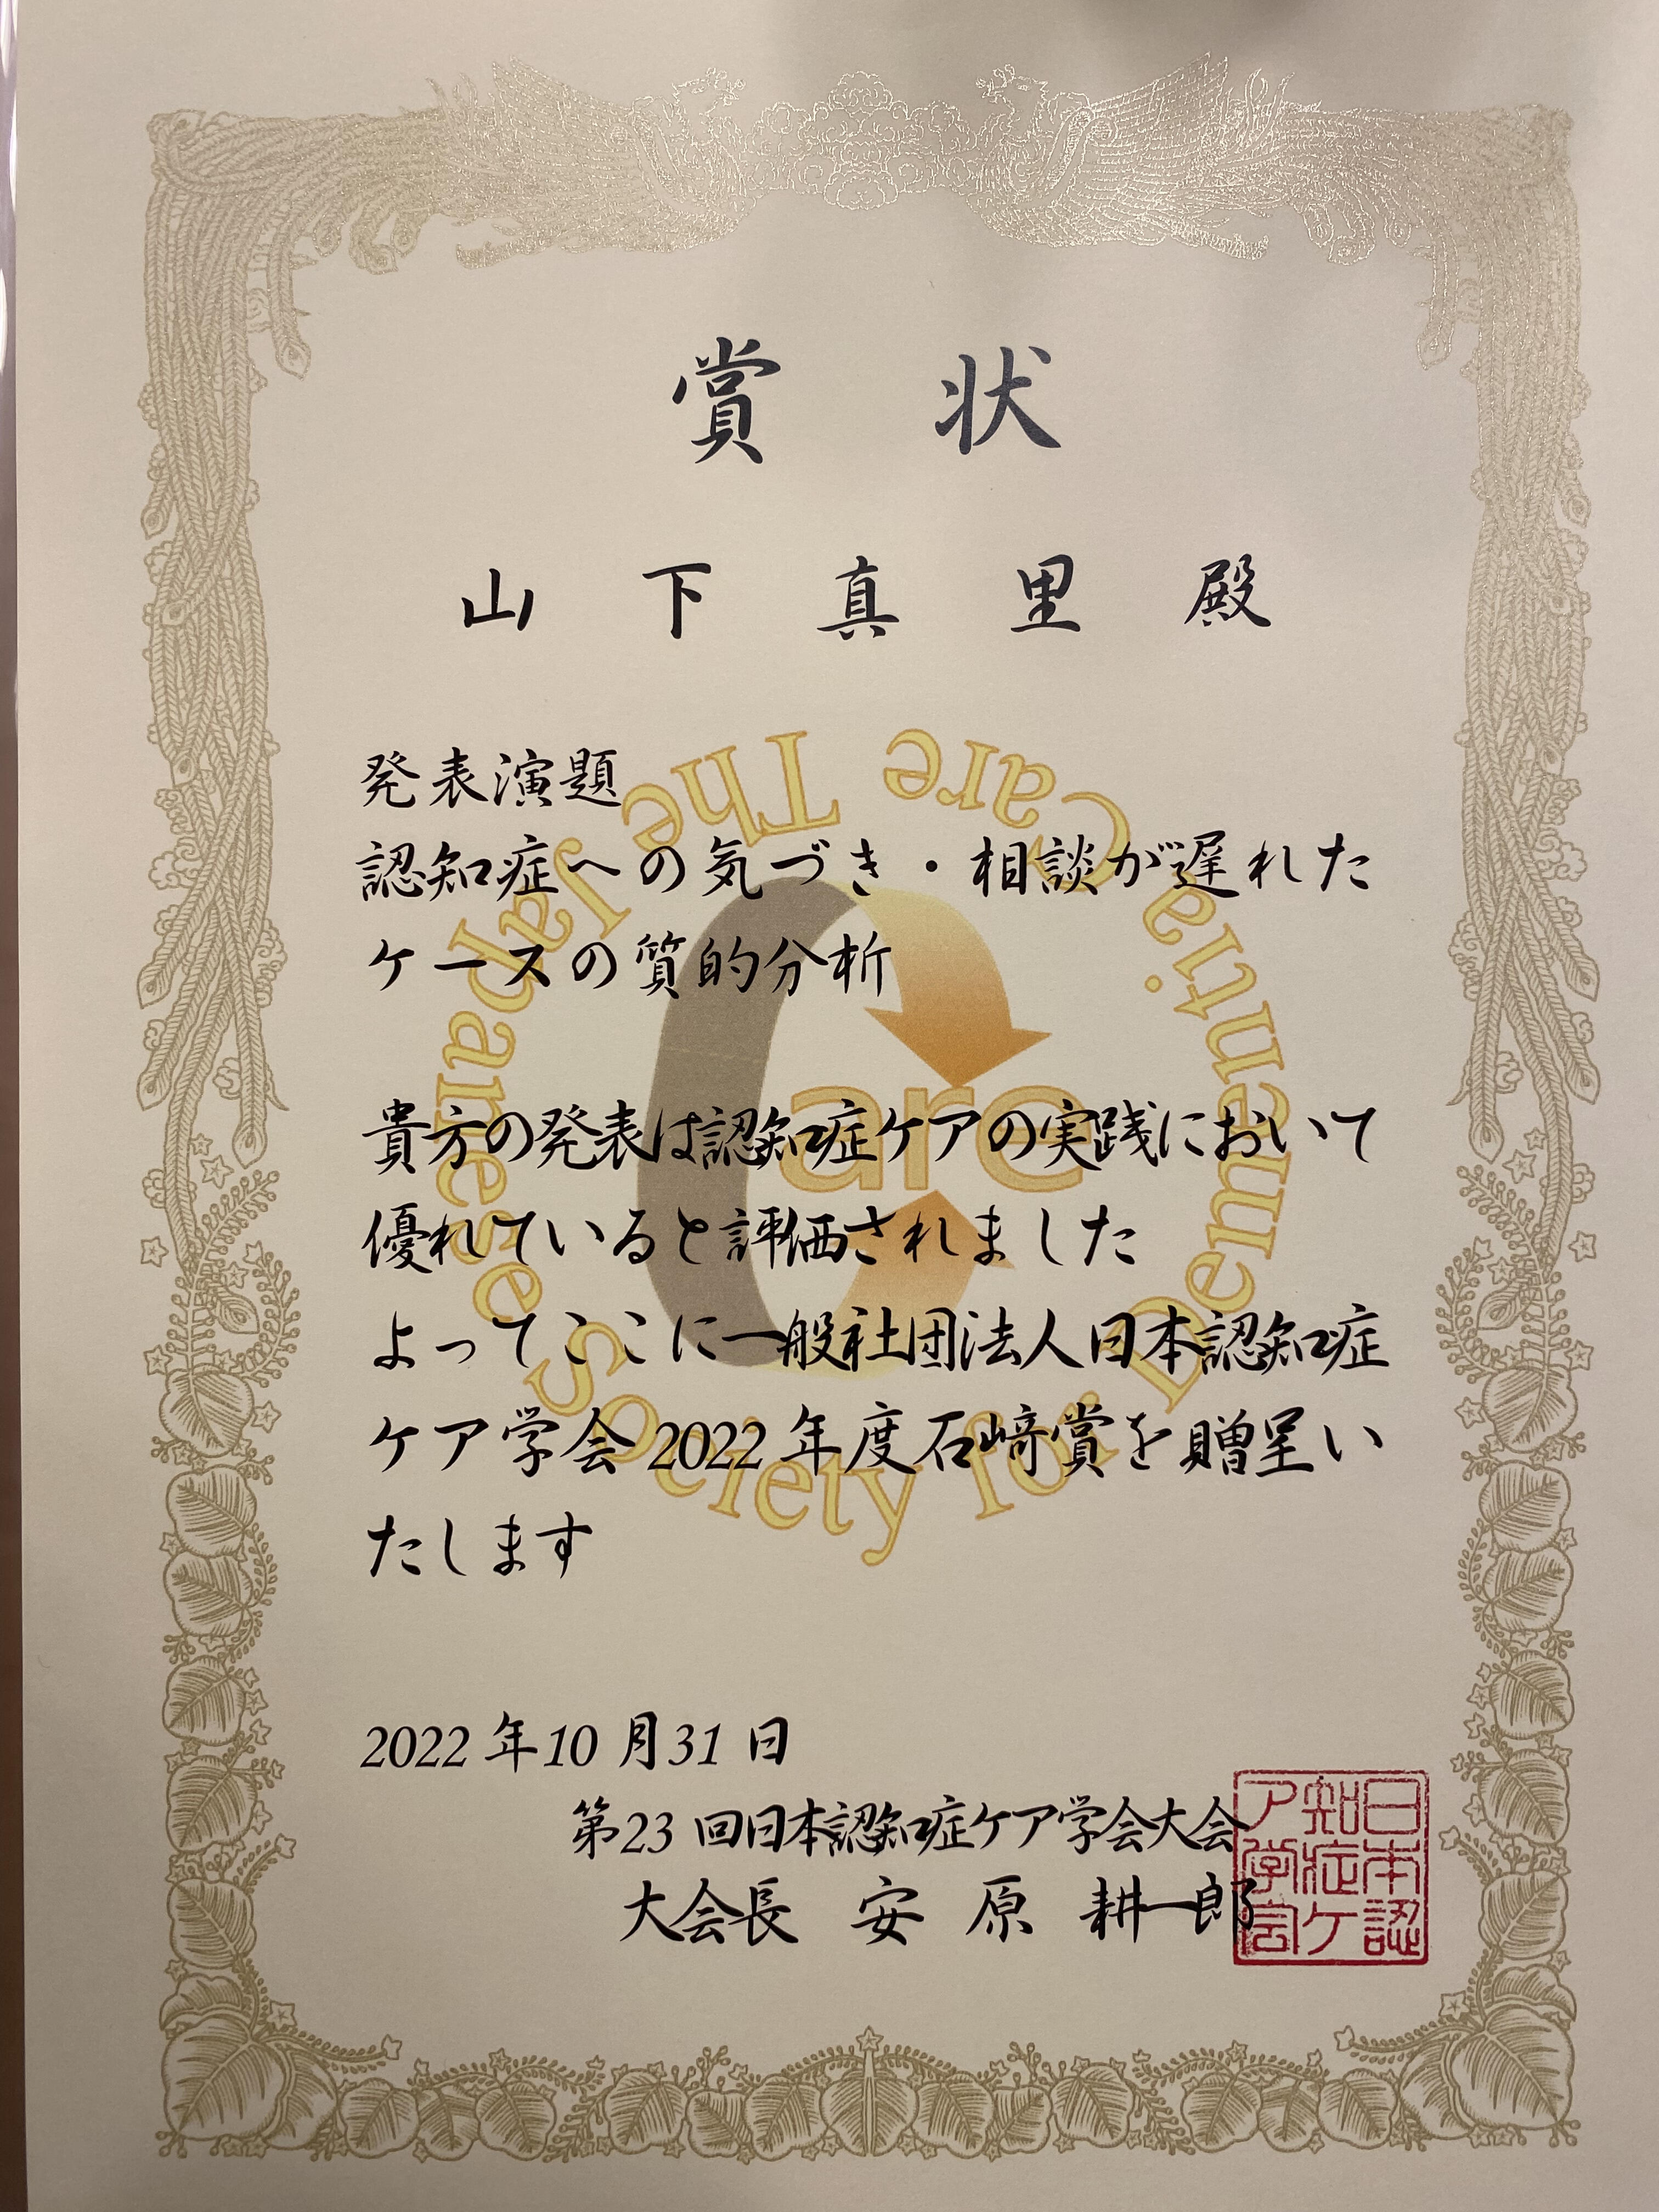 賞状
山下真里殿
発表演題
認知症への気づき・相談が遅れた
ケースの質的分析
貴方の発表は認知症ケアの実践において
優れていると評価されました
よってここに一般社団法人日本認知症
ケア学会2022年度石﨑賞を贈呈い
たします
2022年10月31日
第23回日本認知症ケア学会大会
大会長 安原耕一郎
日本認知症ケア学会
The Japanese Society for Dementia Care
Care